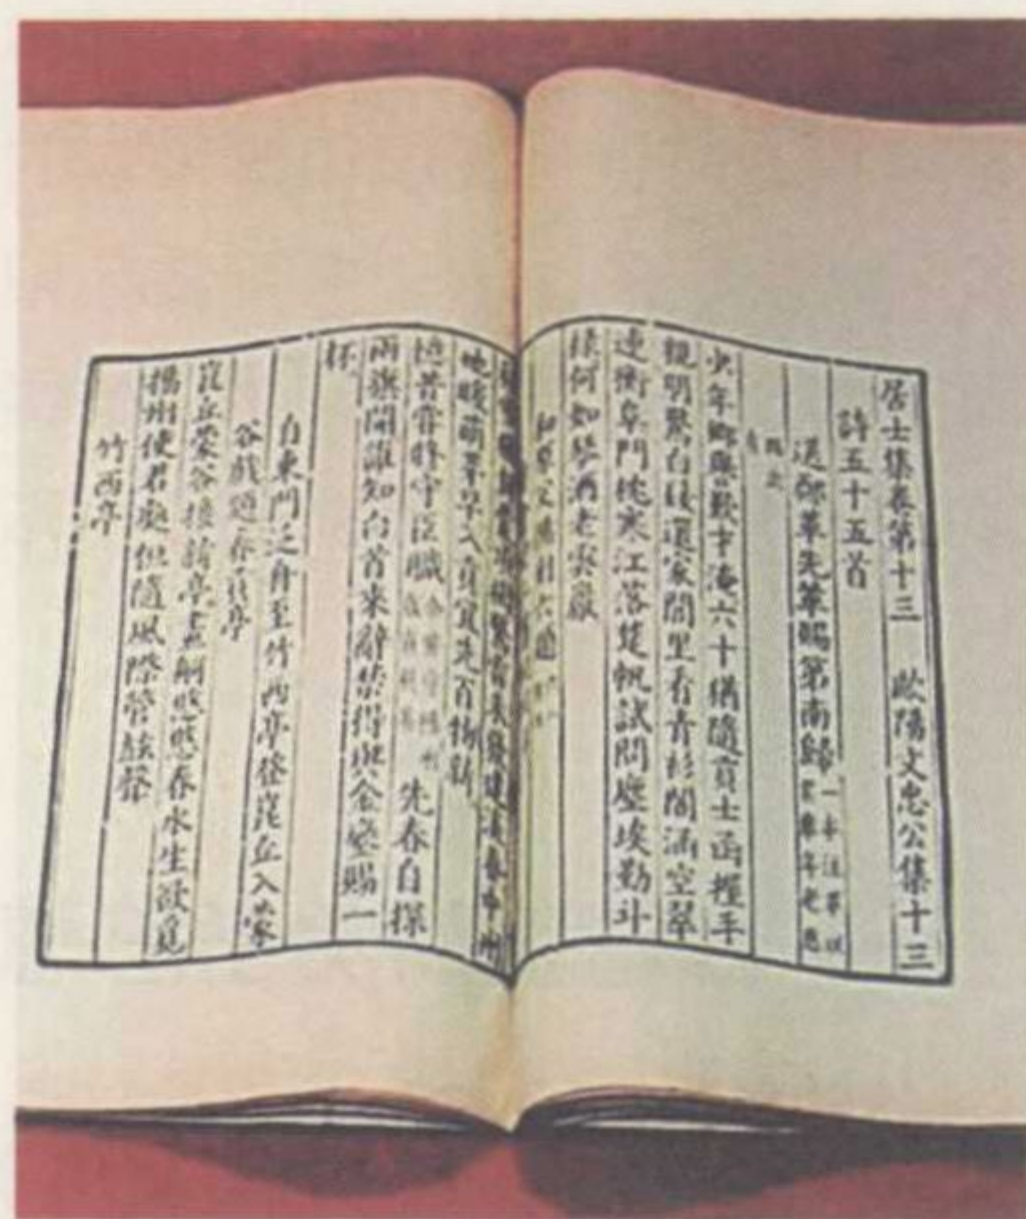 居士集卷第十三　歐陽文忠公集十三
詩五十五首
送　革先輩賜第南歸 一本注革以累舉年老恩
少年鄉譽歎才淹六十猶隨貢士函握手
親朋驚白髮還家閭里看青衫閣涵空翠
連衡阜門枕寒江落楚帆試問塵埃勤斗
祿何如琴酒老雲巖
和原父揚州六題
雷未發建溪春中州
地暖萌芽早入貢宜先百物新
憶昔嘗修守臣職　先春自探
兩旗開誰知白首來辭禁得與金鑾賜一
杯
自東門泛舟至竹西亭登崑丘入蒙
谷戲題春貢亭
崑丘蒙谷接新亭畫舸悠悠春水生欲覓
揚州使君處但隨風際管絃聲
竹西亭